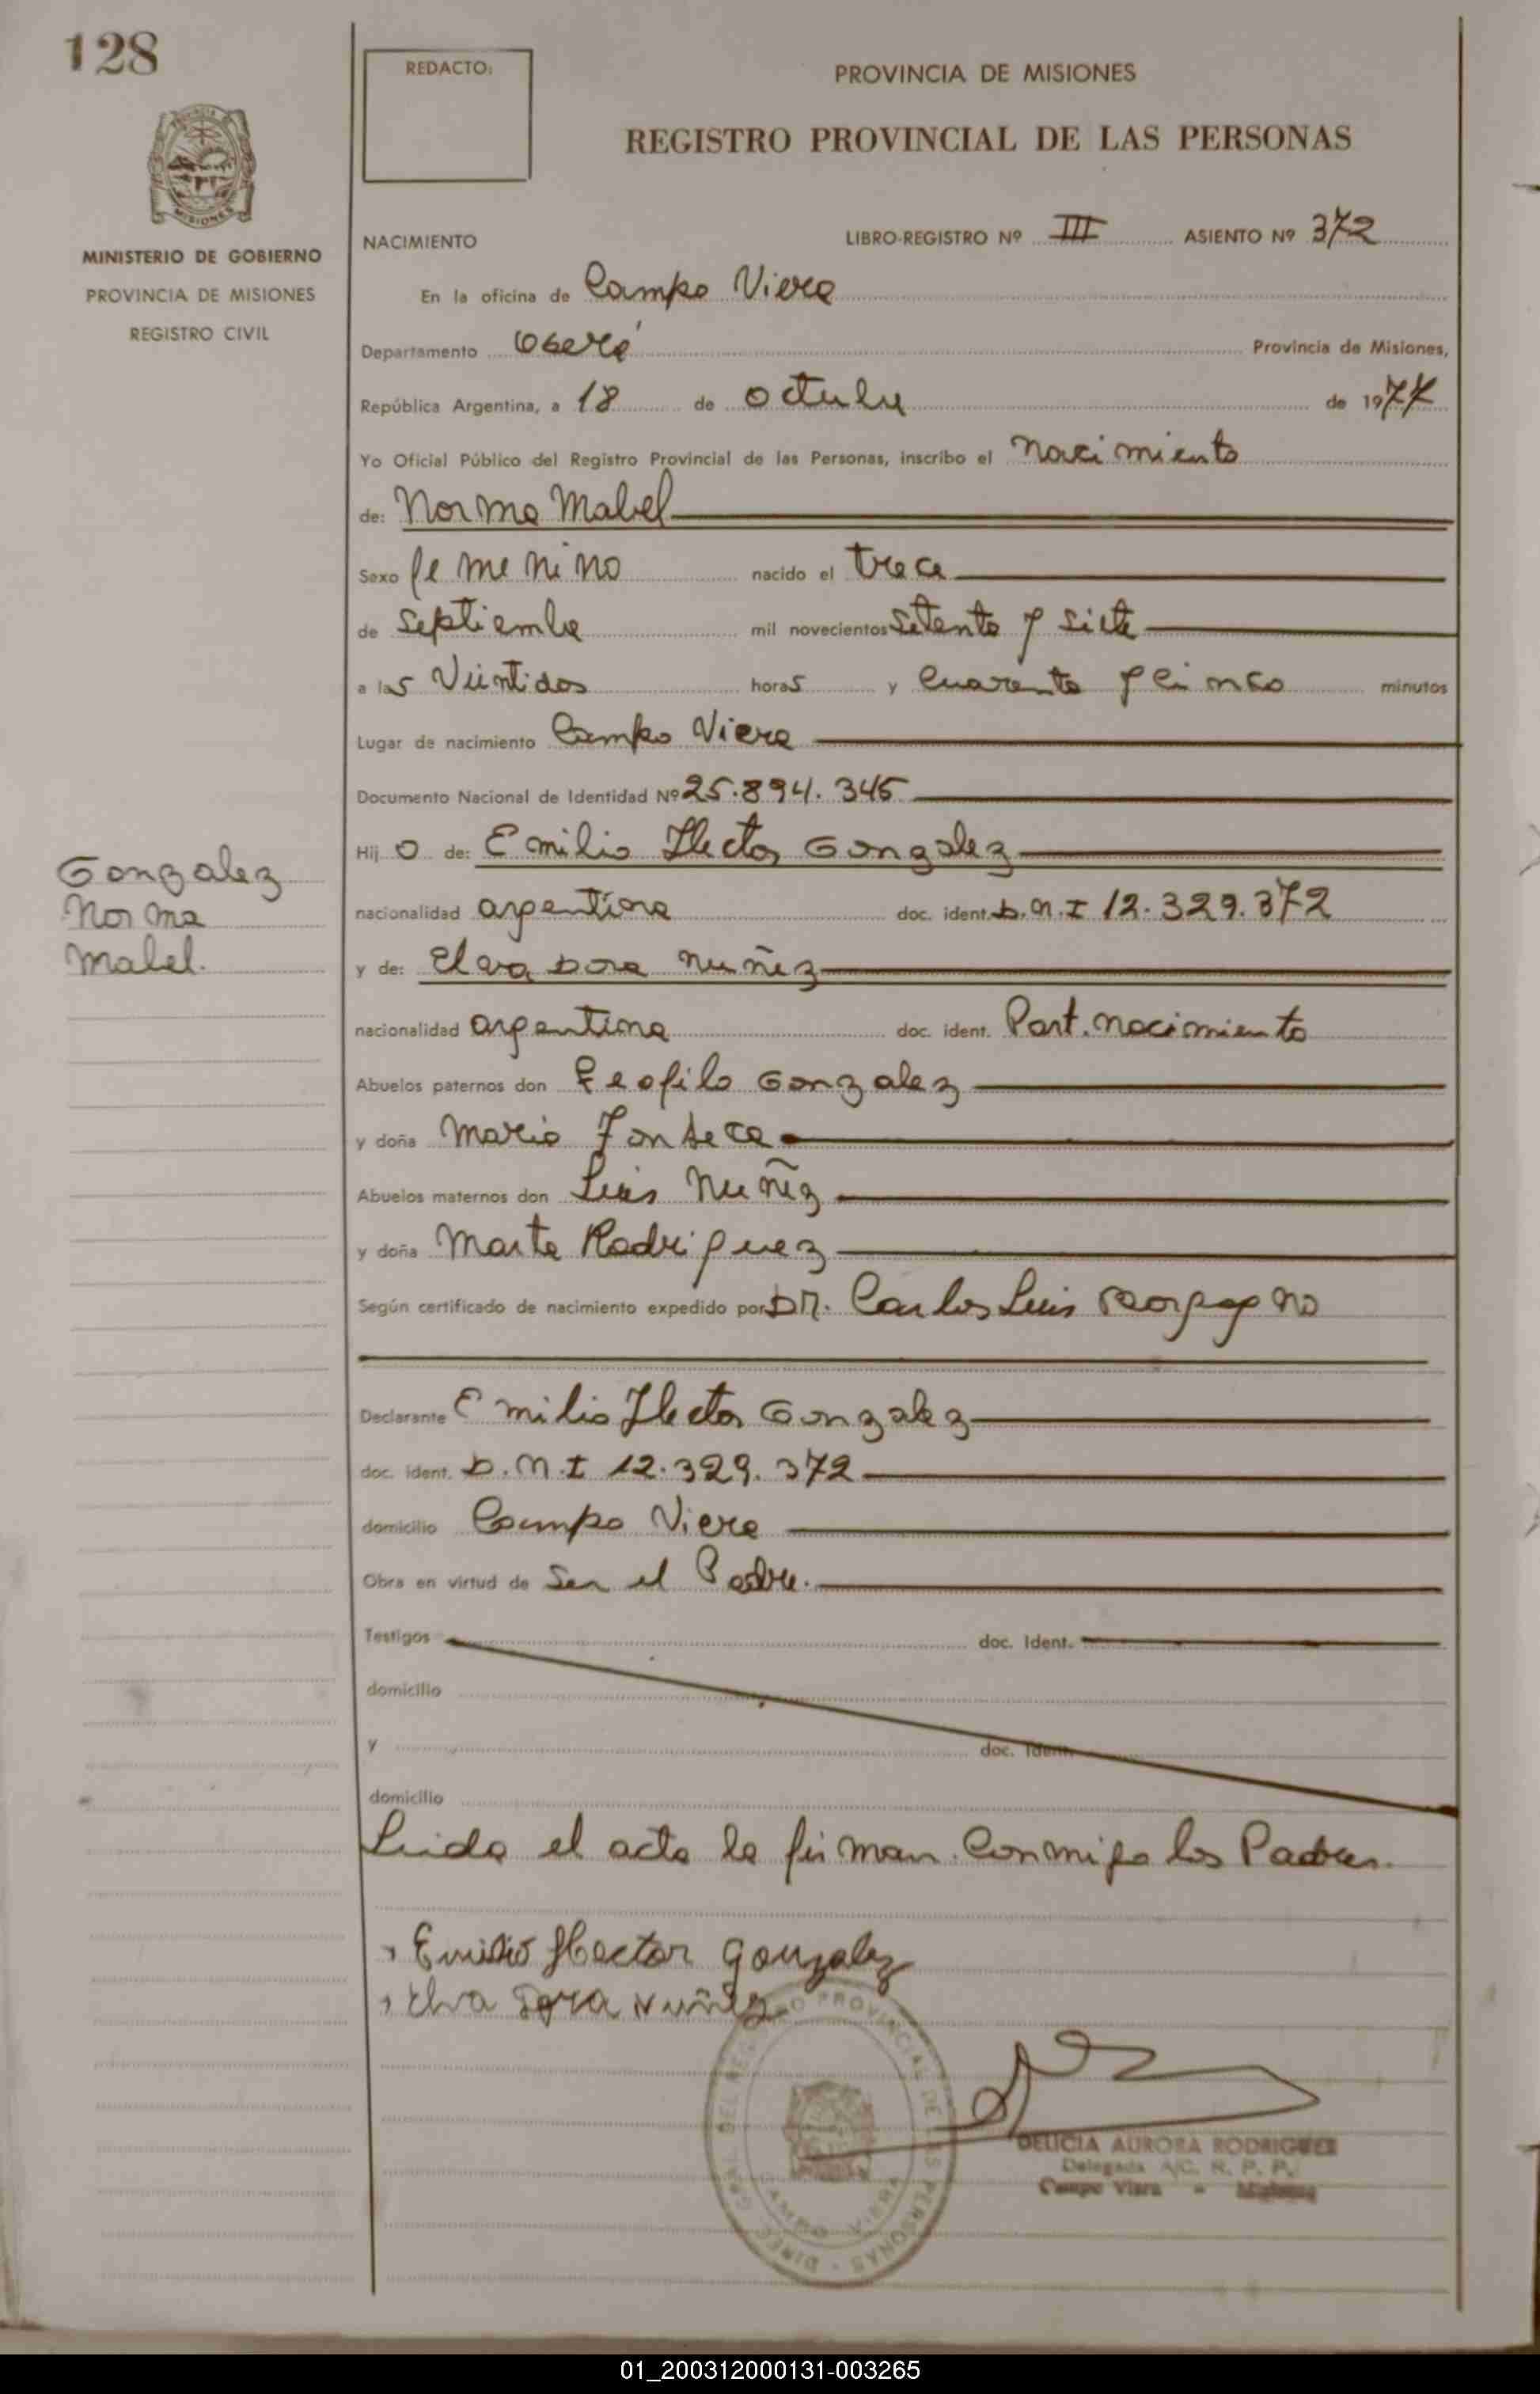 128
REDACTO:
PROVINCIA DE MISIONES
REGISTRO PROVINCIAL DE LAS PERSONAS
MISIONES
MINISTERIO DE GOBIERNO
PROVINCIA DE MISIONES
REGISTRO CIVIL
NACIMIENTO LIBRO-REGISTRO Nº III ASIENTO Nº 372
En la oficina de Campo Viera
Departamento Oberá Provincia de Misiones,
República Argentina, a 18 de octubre de 1977
Yo Oficial Público del Registro Provincial de las Personas, inscribo el nacimiento
de: Norma Mabel
Sexo femenino nacido el trece
de septiembre mil novecientos setenta y siete
a las Veintidos horas y cuarenta y cinco minutos
Lugar de nacimiento Campo Viera
Documento Nacional de Identidad Nº 25.894.345
Hijo de: Emilio Hector Gonzalez
Gonzalez
Norma
Mabel.
nacionalidad argentina doc. ident. D.N.I 12.329.372
y de: Elva Dora Nuñez
nacionalidad argentina doc. ident. Part. nacimiento
Abuelos paternos don Teofilo Gonzalez
y doña Maria Fonseca
Abuelos maternos don Luis Nuñez
y doña Marta Rodriguez
Según certificado de nacimiento expedido por DR. Carlos Luis
Declarante Emilio Hector Gonzalez
doc. ident. D.N.I 12.329.372
domicilio Campo Viera
Obra en virtud de Ser el Padre.
Testigos doc. Ident.
domicilio
y doc. Ident.
domicilio
Leida el acta la firman conmigo los Padres.
Emilio Hector Gonzalez
Elva Dora Nuñez
DIREC. GRAL. DEL REGISTRO PROVINCIAL DE LAS PERSONAS
CAMPO VIERA
DELICIA AURORA RODRIGUEZ
Delegada A/C. R. P. P.
Campo Viera - Misiones
01_200312000131-003265